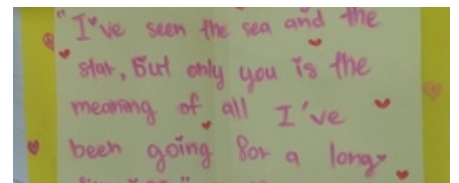 "I've seen the sea and the
star, But only you is the
meaning of all I've
been going for a long